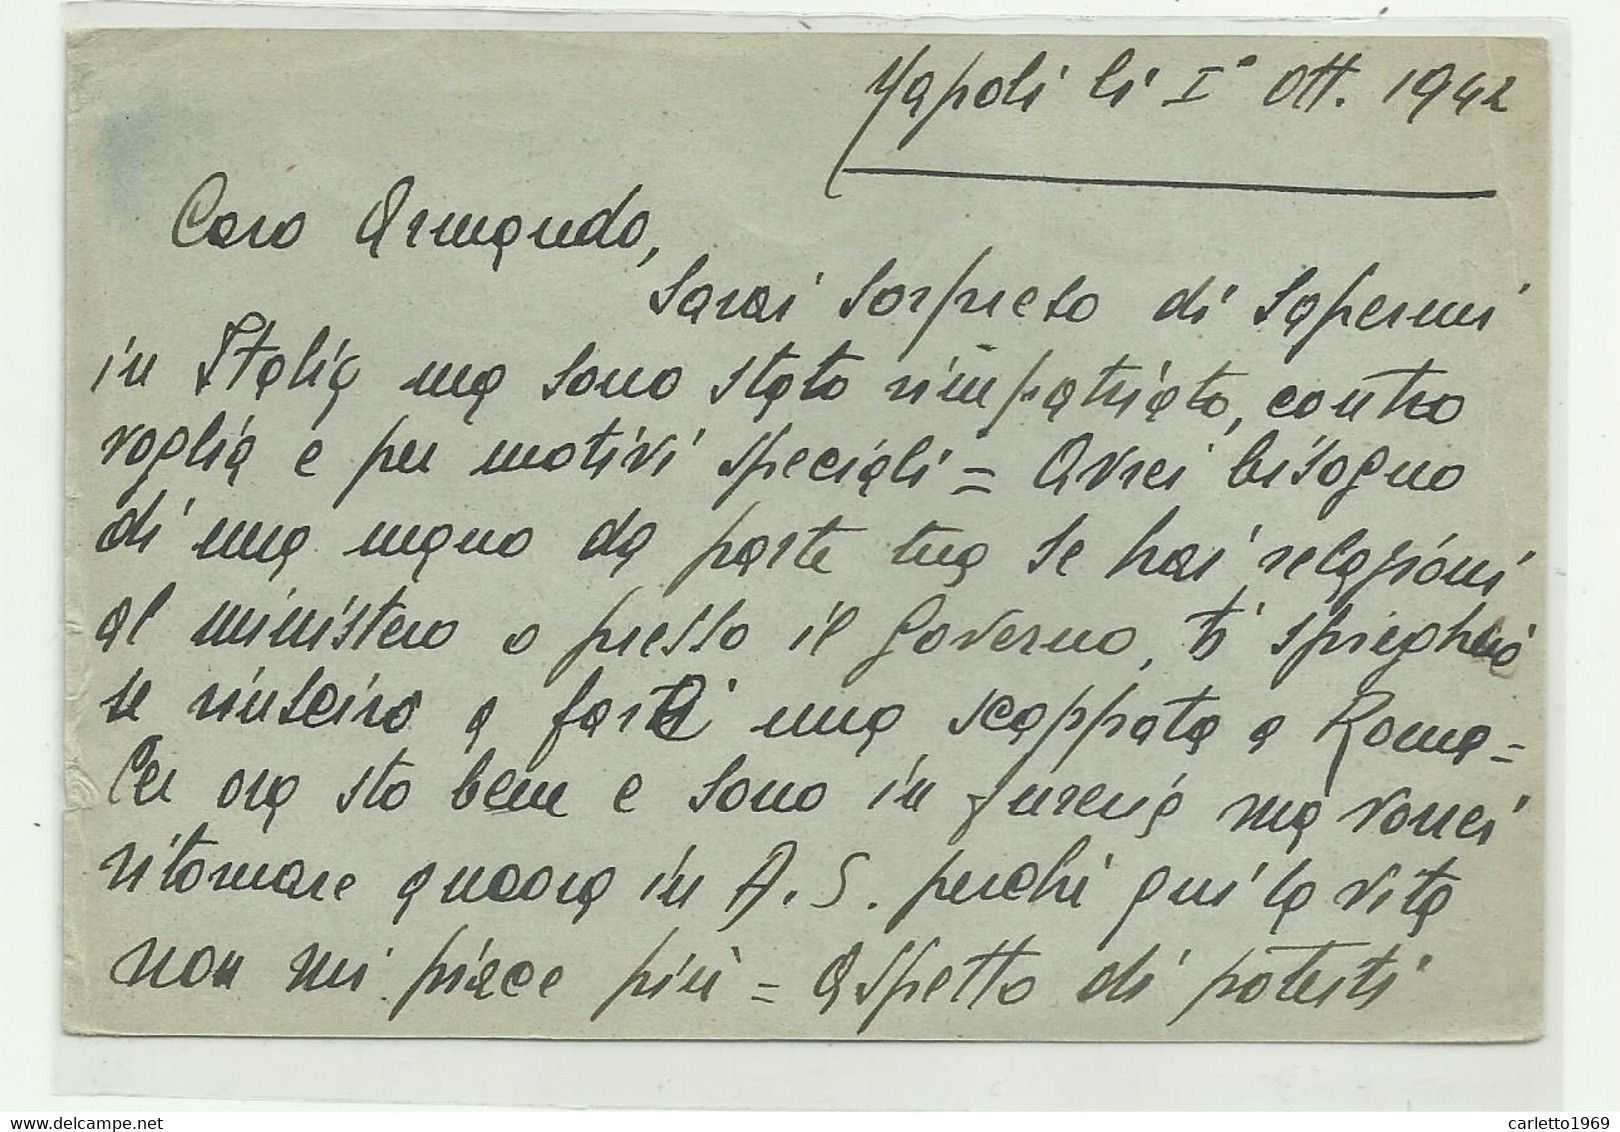 Napoli li I° Ott. 1942
Caro Armando,
Sarai sorpreso di sapermi
in Italia ma sono stato rimpatriato, contro
voglia e per motivi speciali = Avrei bisogno
di una mano da parte tua se hai relazioni
al ministero o presso il Governo, ti spiegherò
se riuscirò a farti una scappata a Roma =
Per ora sto bene e sono in  ma vorrei
ritornare ancora in A.S. perchi qui la vita
non mi piace più = Aspetto di poterti
carletto1969
www.delcampe.net